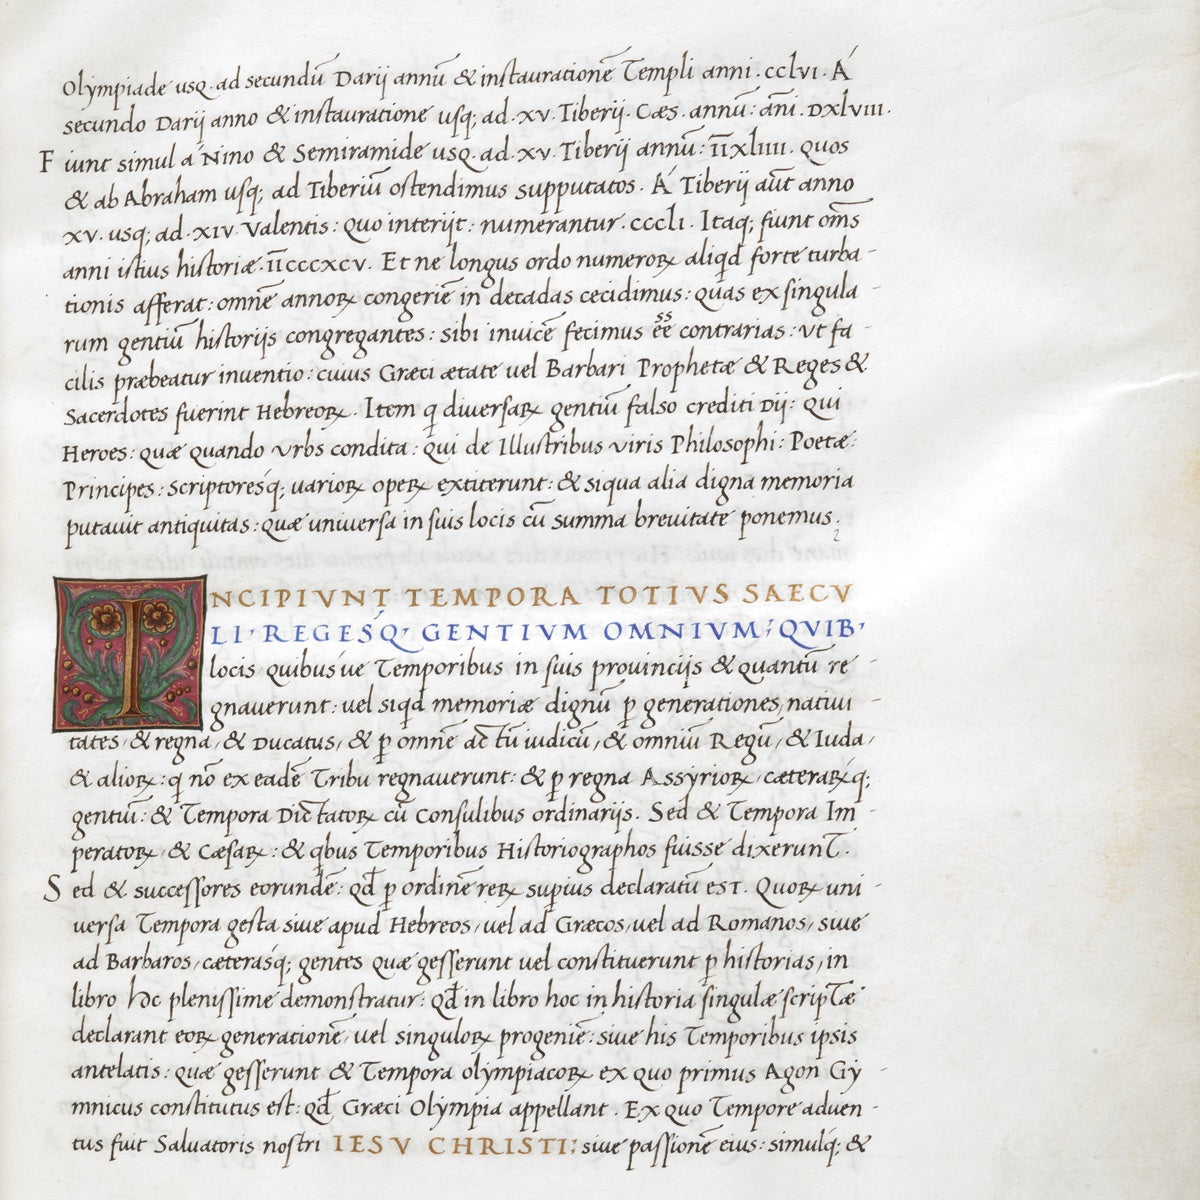 Olympiade usq. ad secundū Darij annū & instaurationē Templi anni. cclvi. Á
secundo Darij anno & instauratione usq; ad. xv. Tiberij. Cæs. annū: āni. Dxlviii.
Fiunt simul á Nino & Semiramide usq. ad. xv. Tiberij annū: īīxliiii. quos
& ab Abraham usq; ad Tiberiū ostendimus supputatos. Á Tiberij aūt anno
xv. usq; ad. xiv. Valentis: quo interijt: numerantur. cccli. Itaq; fiunt om̄s
anni istius historiæ. īīcccxcv. Et ne longus ordo numeroꝝ aliqd forte turba-
tionis afferat: omnē annoꝝ congeriē in decadas cecidimus: quas ex singula-
rum gentiū historijs congregantes: sibi inuicē fecimus ēē contrarias: vt fa-
cilis præbeatur inuentio: cuius Græci ætate uel Barbari Prophetæ & Reges &
Sacerdotes fuerint Hebreoꝝ. Item q diuersaꝝ gentiū falso crediti Dij: qui
Heroes: quæ quando vrbs condita: qui de Illustribus viris Philosophi: Poetæ:
Principes: scriptoresq́; uarioꝝ opeꝝ extiterunt: & siqua alia digna memoria
putauit antiquitas: quæ uniuersa in suis locis cū summa breuitate ponemus.
INCIPIVNT TEMPORA TOTIVS SAECV
LI· REGESQ́· GENTIVM OMNIVM; QVIB·
locis quibus'ue Temporibus in suis prouincijs & quantū re-
gnauerunt: uel siqd memoriæ dignū ꝑ generationes, natiui-
tates, & regna, & Ducatus, & ꝑ omnē actū iudicū, & omniū Regū, & Iuda,
& alioꝝ: q nō ex eadē Tribu regnauerunt: & ꝑ regna Assyrioꝝ, cæteraꝝq́;
gentiū: & Tempora Dictatoꝝ cū Consulibus ordinarijs. Sed & Tempora Im-
peratoꝝ, & Cæsaꝝ: & qbus Temporibus Historiographos fuisse dixerunt.
Sed & successores eorundē: qđ ꝑ ordinē reꝝ supius declaratū est. Quoꝝ uni-
uersa Tempora gesta siue apud Hebreos, uel ad Græcos, uel ad Romanos, siue
ad Barbaros, cæterásq́; gentes quæ gesserunt uel constituerunt ꝑ historias, in
libro hoc plenissime demonstratur: qđ in libro hoc in historia singulæ scriptæ
declarant eoꝝ generationē, uel singuloꝝ progeniē: siue his Temporibus ipsis
antelatis: quæ gesserunt & Tempora olympiacoꝝ ex quo primus Agon Gy-
mnicus constitutus est: qđ Græci Olympia appellant. Ex quo Tempore aduen-
tus fuit Saluatoris nostri IESV CHRISTI: siue passionē eius: simulq́; &